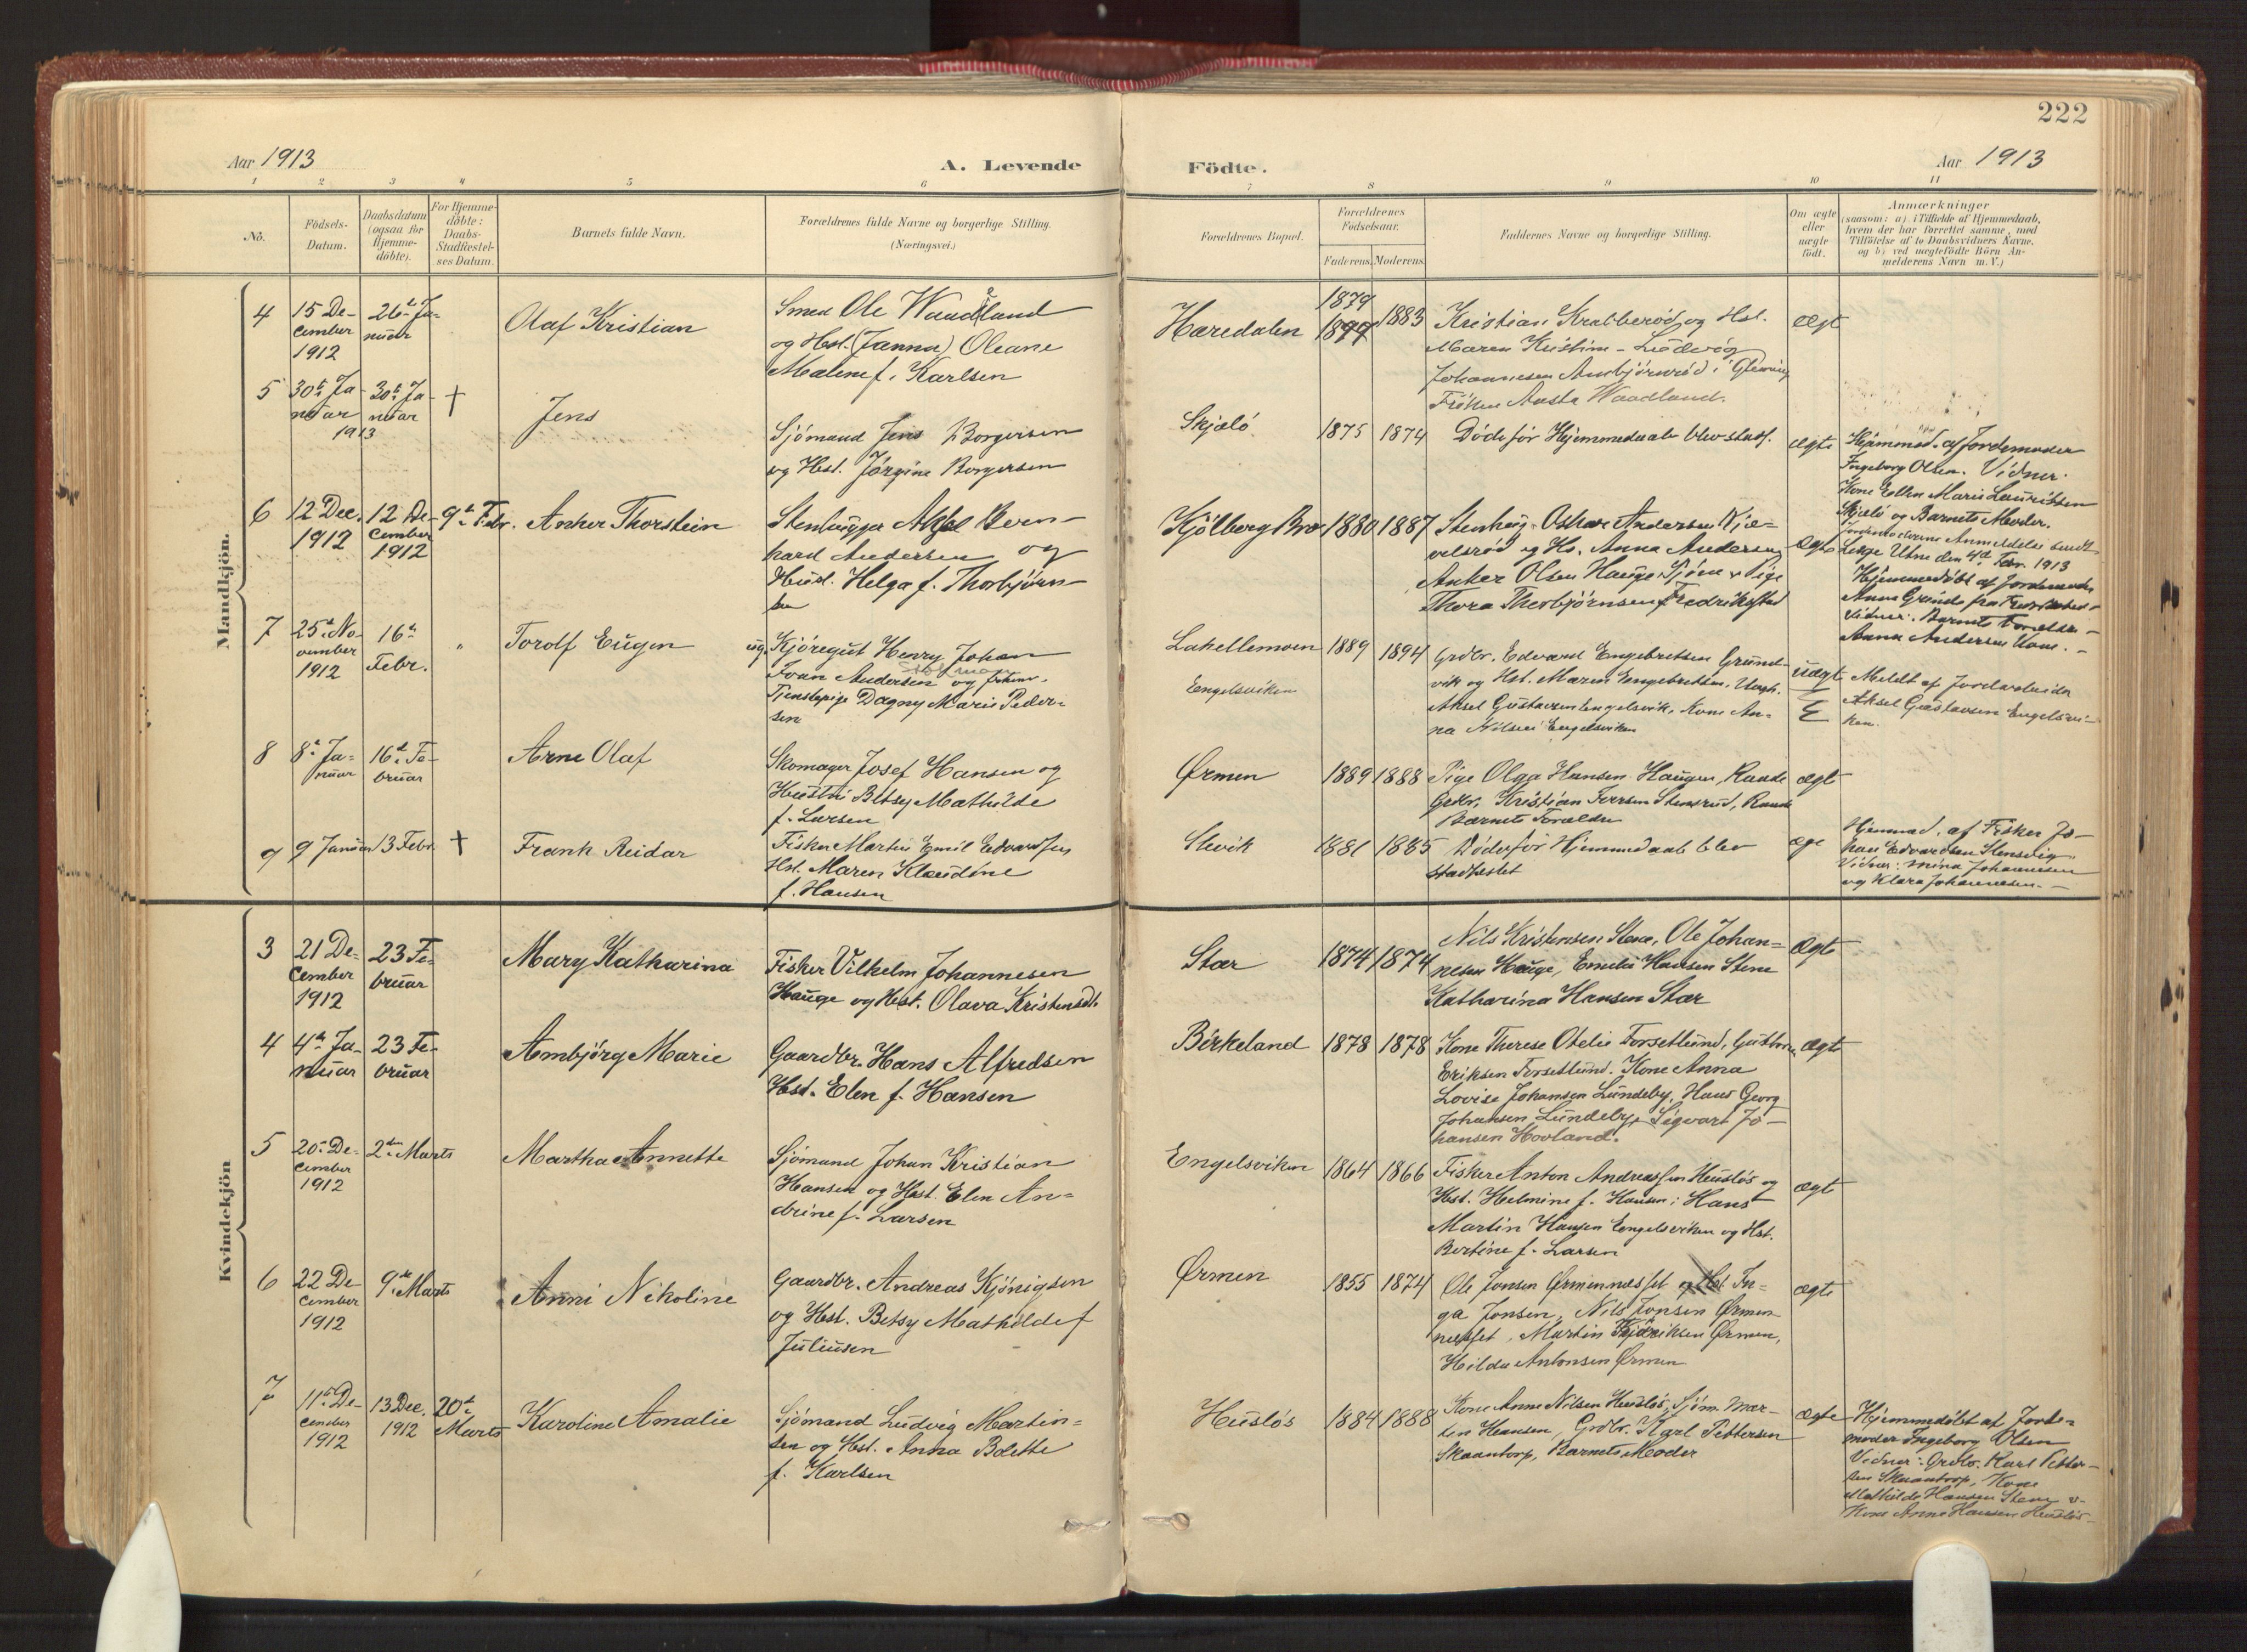 222
Aar 1913
A. Levende
Födte.
Aar 1913
1 2 3 4 5 6 7 8 9 10 11
No.
Födsels-
Datum.
Daabsdatum
(ogsaa for
Hjemme-
döbte).
For Hjemme-
döbte:
Daabs-
Stadfæstel-
ses Datum.
Barnets fulde Navn.
Forældrenes fulde Navne og borgerlige Stilling.
(Næringsvei.)
Forældrenes Bopæl.
Forældrenes
Födselsaar.
Faderens. Moderens.
Faddernes Navne og borgerlige Stilling.
Om ægte
eller
uægte
födt.
Anmærkninger
(saasom: a) i Tilfælde af Hjemmedaab,
hvem der har forrettet samme, med
Tilföielse af to Daabsvidners Navne,
og b) ved uægtefödte Börn An-
melderens Navn m. V.)
Mandkjön.
4
15 De-
cember
1912
26de Ja-
nuar
Olaf Kristian
Smed Ole Waadland
og Hst. (Janna) Oleane
Malene f. Karlsen
Haredalen
1879
1883
Kristian Krabberød og Hst.
Maren Kristine - Ludvig
Johannesen Ambjørnrød i Glemmig
Frøken Aasta Waadland.
ægt
5
30te Ja-
nuar
1913
30te Ja-
nuar
+
Jens
Sjömand Jens Borgersen
og Hst. Jørgine Borgersen
Skjælö
1875 1874
Døde før Hjemmedaab blev stadf.
ægte
Hjemmed. af Jordemoder
Ingeborg Olsen. Vidner.
Kone Ellen Marie Lauritsen
Skjælö og Barnets Moder.
Jordemoderens Anmeldelse sendt
Læge Utne den 4de Febr. 1913
6
12 Dec.
1912
12 De-
cember
1912
9de Febr.
Anker Thorstein
Stenhugger Aksel Bern-
hard Andersen og
Hust. Helga f. Thorbjørn-
sen
Kjölberg Bro
1880 1887
Stenhug. Oskar Andersen Nje-
velsrød og Hs. Anna Andersen,
Anker Olsen Hauge, Sjöm. & Pige
Thora Thorbjørnsen, Fredrikstad
ægte
Hjemmedöbt af Jordemoder
Anna Grinde fra Fredrikstad.
Vidner: Barnets Forældre -
Anna Andersen Kone. -
7
25de No-
vember
1912
16de
Febr.
"
Torolf Eugen
ug. Kjöregut Henry Johan
Ivan Andersen og
Tjenstepige Dagny Marie Peder-
sen
Lahellemoen
Engelsviken
1889 1894
Grdbr. Edvard Engebretsen Grund-
vik og Hst. Maren Engebretsen, Ungk.
Aksel Gustavsen Engelsvik, Kone An-
na Nilsen Engelsviken
uægt
Meldt af Jordarbeider
Aksel Gustavsen Engelsvi-
ken.
8
8de Ja-
nuar
16de Fe-
bruar
Arne Olaf
Skomager Josef Hansen og
Hustru Betsy Mathilde
f. Larsen
Ørmen
1889 1888
Pige Olga Hansen Haugen, Raade
Grdbr. Kristian Iversen Stenrud, Raade
Barnets Forældre
ægt
9
9 Januar
13 Febr.
+
Frank Reidar
Fisker Martin Emil Edvardsen
Hst. Maren Klaudine
f. Hansen
Slevik
1881 1885
Døde før Hjemmedaab blev
stadfæstet
ægt
Hjemmed. af Fisker Jo-
han Edvardsen Stensvig
Vidner: Mina Johannesen
og Klara Johannesen. -
Kvindekjön
3
21 De-
cember
1912
23 Fe-
bruar
Mary Katharina
Fisker Vilhelm Johannesen
Hauge og Hst. Olava Kristensdt.
Stær
1874 1874
Nils Kristensen Stene, Ole Johan-
nesen Hauge, Emilie Hansen Stene
Katharina Hansen Stær
Ægt
4
4de Ja-
nuar
23 Fe-
bruar
Ambjörg Marie
Gaardbr. Hans Alfredsen
Hst. Elen f. Hansen
Birkeland
1878 1878
Kone Therese Otelie Torsetlund, Gustav
Eriksen Torsetlund. Kone Anna
Lovise Johansen Lundeby, Hans Georg
Johansen Lundeby, Sigvart Jo-
hansen Hovland.
ægt
5
20de De-
cember
1912
2den Marts
Martha Annette
Sjömand Johan Kristian
Hansen og Hst. Elen An-
drine f. Larsen
Engelsviken
1864 1866
Fisker Anton Andreassen Husløs og
Hst. Helmine f. Hansen; Hans
Martin Hansen Engelsviken og Hst.
Bertine f. Larsen
ægt
6
22 De-
cember
1912
9de Marts
Anni Nikoline
Gaardbr. Andreas Kjönigsen
og Hst. Betsy Mathilde f
Juliusen
Ørmen
1855 1874
Ole Jonsen Ørmennesset og Hst. In-
ga Jonsen, Nils Jonsen Ørmen-
nesset, Martin Ørmen,
Hilda Antonsen Ørmen
ægte
7
11te De-
cember
1912
13 Dec.
1912
20de
Marts
Karoline Amalie
Sjömand Ludvig Martin-
sen og Hst. Anna Bolette
f. Karlsen
Husløs
1884 1888
Kone Anne Nilsen Husløs, Sjöm. Mar-
tin Hansen, Grdbr. Karl Pettersen
Skaantorp, Barnets Moder
ægte
Hjemmedöbt af Jorde-
moder Ingeborg Olsen
Vidner: Grdbr. Karl Petter-
sen Skaantorp, Kone
Mathilde Hansen Stene &
Kone Anne Hansen Husløs -